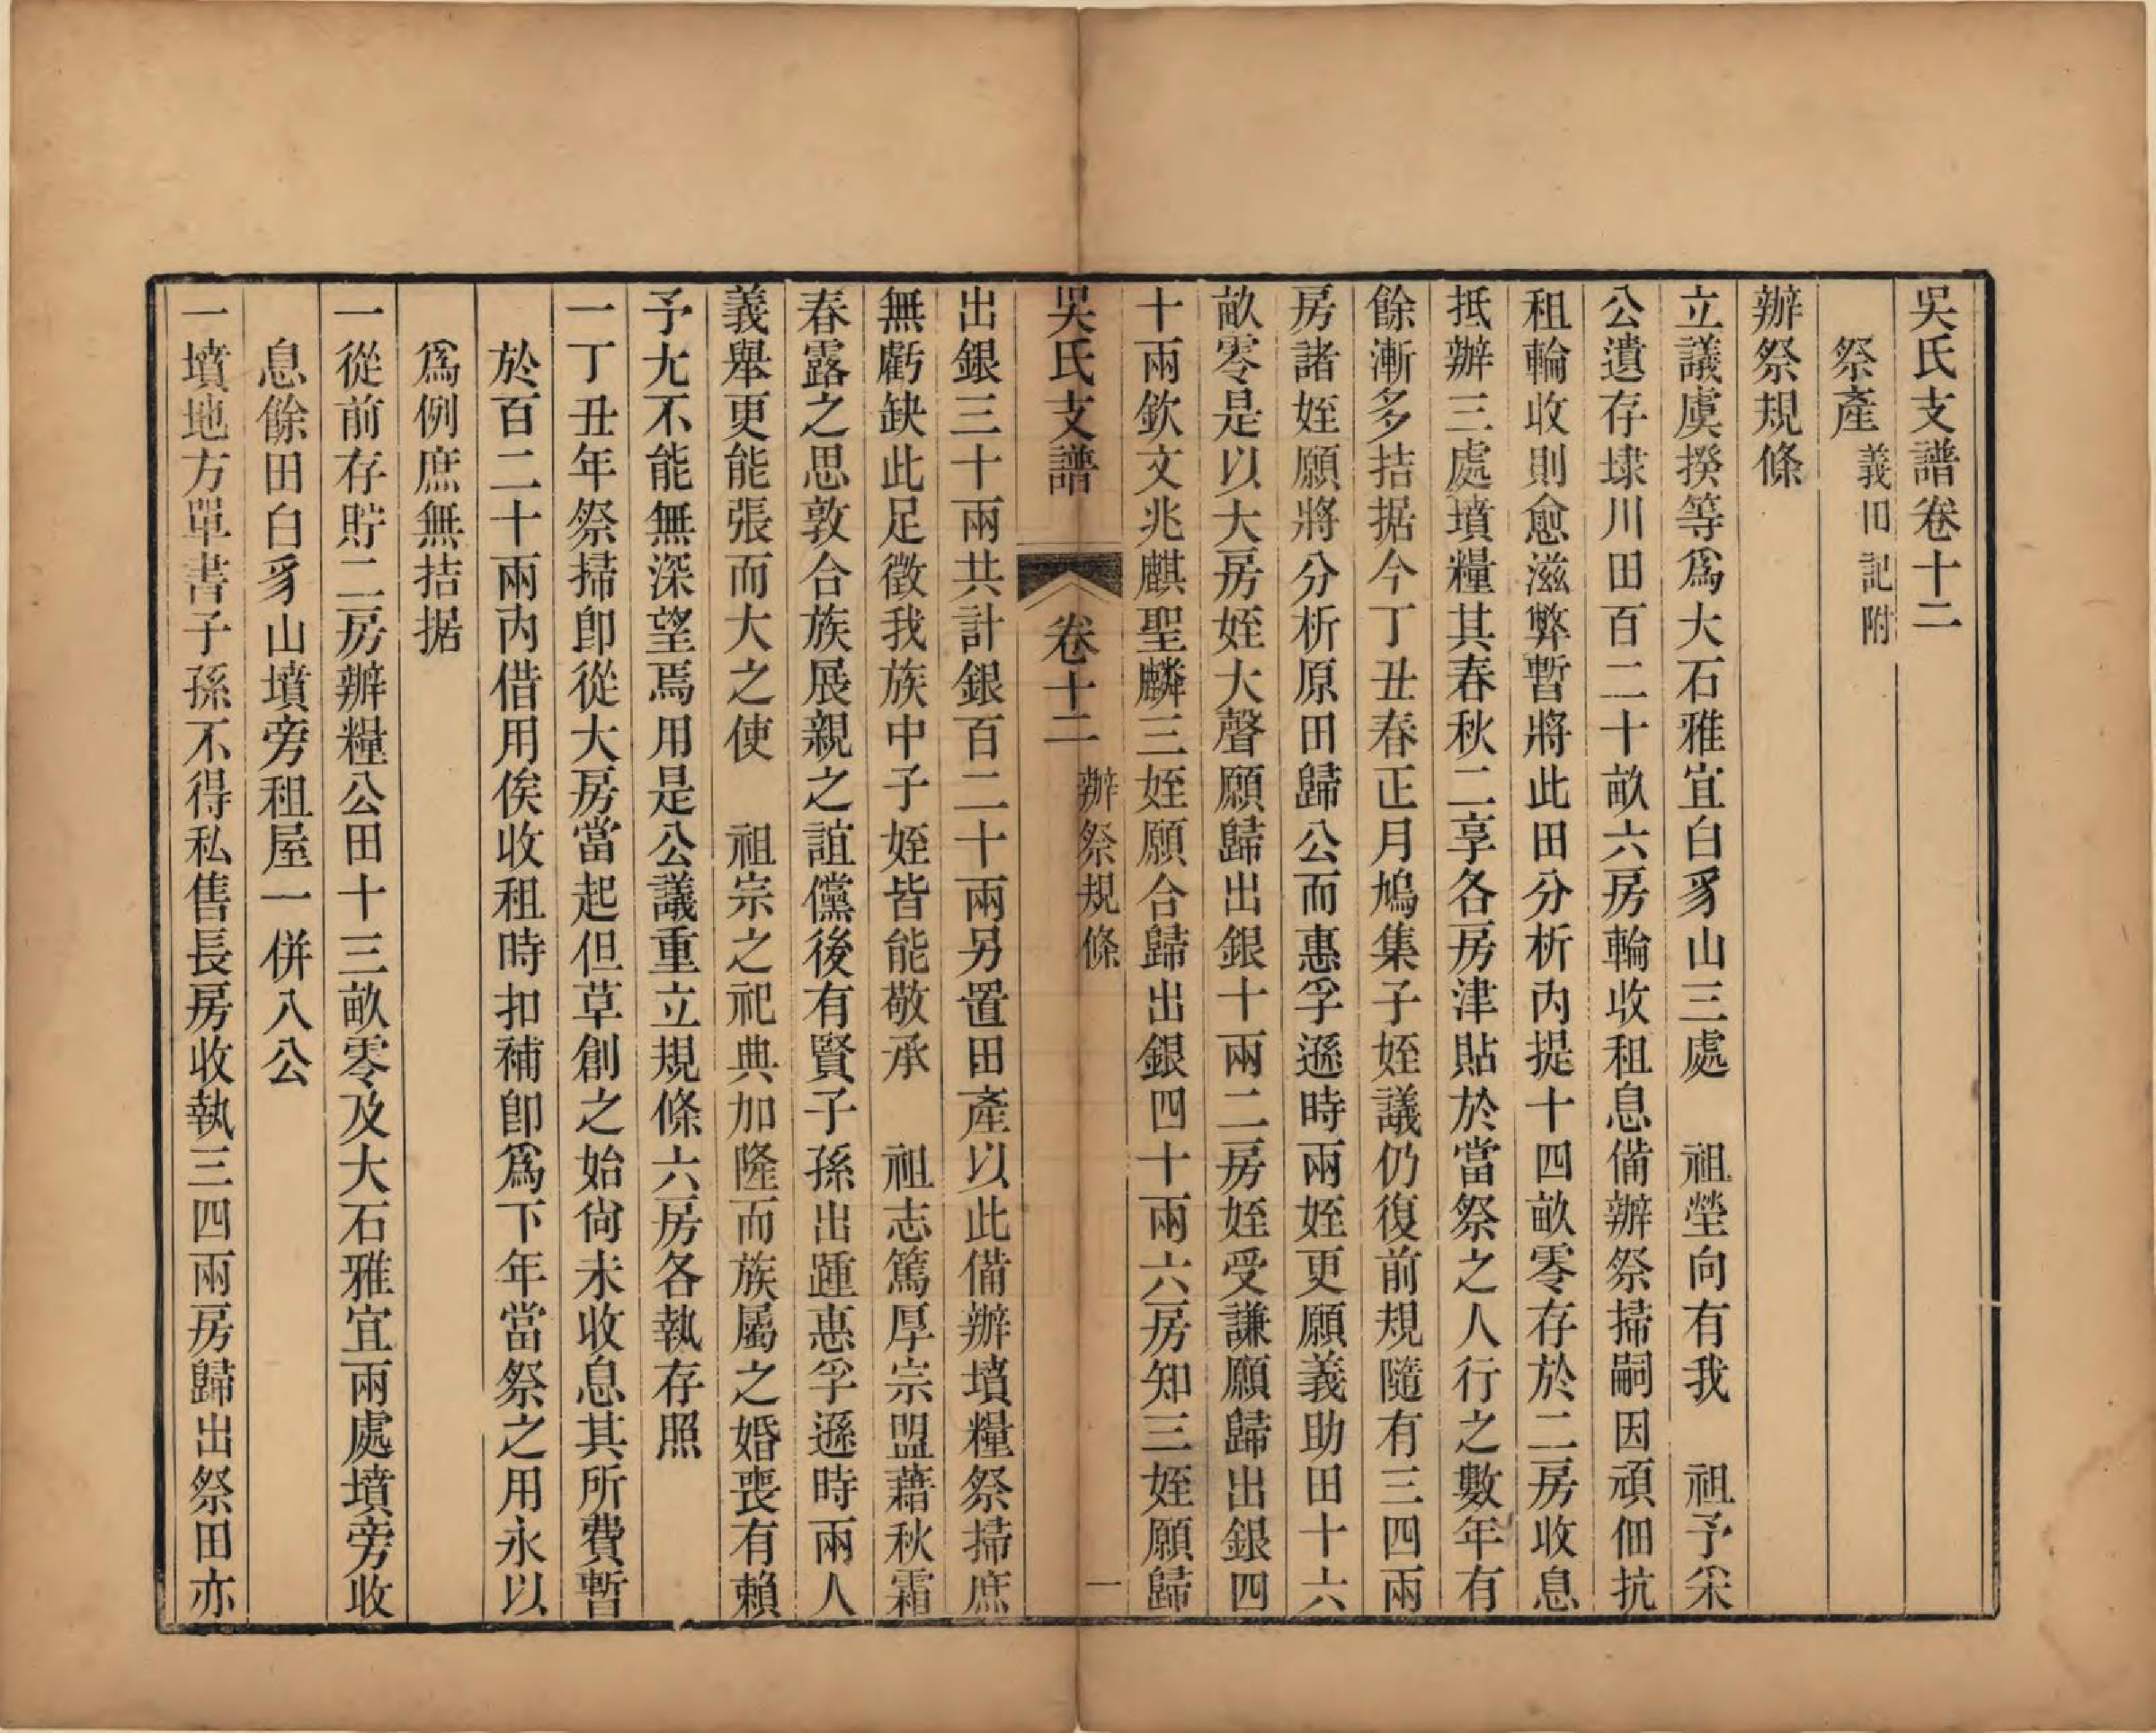 吳氏支譜卷十二
祭產 義田記附
辦祭規條
立議虞揆等爲大石雅宜白豸山三處 祖塋向有我 祖予寀
公遺存埭川田百二十畝六房輪收租息備辦祭掃嗣因頑佃抗
租輪收則愈滋弊暫將此田分析內提十四畝零存於二房收息
抵辦三處墳糧其春秋二享各房津貼於當祭之人行之數年有
餘漸多拮据今丁丑春正月鳩集子姪議仍復前規隨有三四兩
房諸姪願將分析原田歸公而惠孚遜時兩姪更願義助田十六
畝零是以大房姪大聲願歸出銀十兩二房姪受謙願歸出銀四
十兩欽文兆麒聖麟三姪願合歸出銀四十兩六房知三姪願歸
吳氏支譜 卷十二 辦祭規條 一
出銀三十兩共計銀百二十兩另置田產以此備辦墳糧祭掃庶
無虧缺此足徵我族中子姪皆能敬承 祖志篤厚宗盟藉秋霜
春露之思敦合族展親之誼儻後有賢子孫出踵惠孚遜時兩人
義舉更能張而大之使 祖宗之祀典加隆而族屬之婚喪有賴
予尤不能無深望焉用是公議重立規條六房各執存照
一丁丑年祭掃卽從大房當起但草創之始尙未收息其所費暫
於百二十兩內借用俟收租時扣補卽爲下年當祭之用永以
爲例庶無拮据
一從前存貯二房辦糧公田十三畝零及大石雅宜兩處墳旁收
息餘田白豸山墳旁租屋一併入公
一墳地方單書子孫不得私售長房收執三四兩房歸出祭田亦